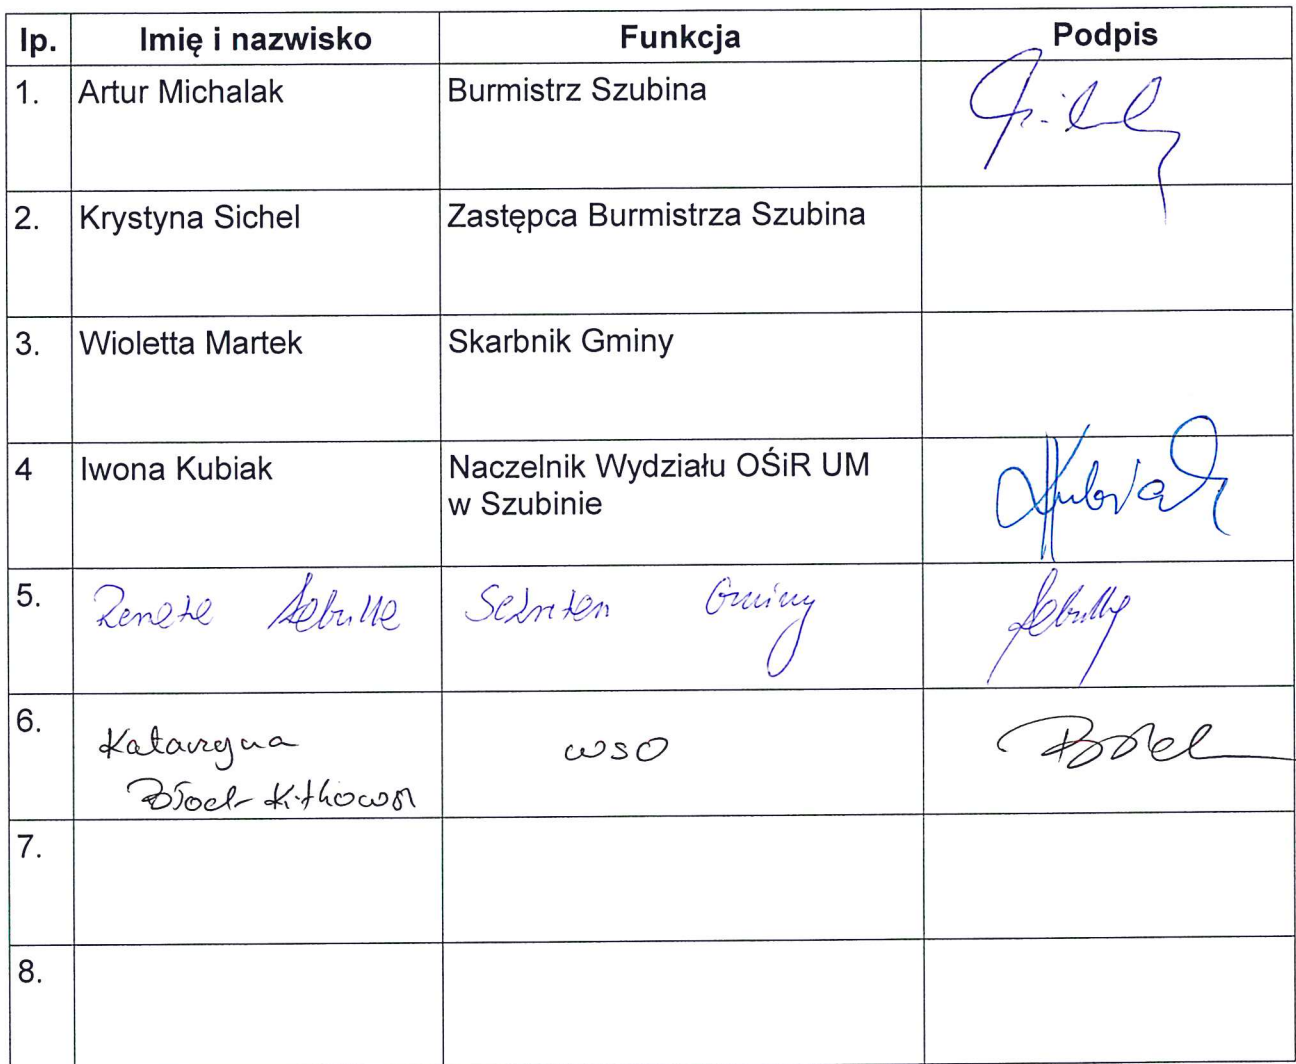 lp. Imię i nazwisko Funkcja Podpis
1. Artur Michalak Burmistrz Szubina
2. Krystyna Sichel Zastępca Burmistrza Szubina
3. Wioletta Martek Skarbnik Gminy
4 Iwona Kubiak Naczelnik Wydziału OŚiR UM
w Szubinie Kubiak
5. Renata Sekretarz Gminy
6. Katarzyna WSO
7.
8.